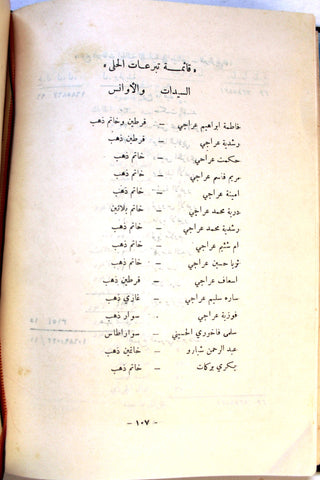 « قائمة تبرعات الحلى »
السيدات والأوانس
فاطمة ابراهيم عراجي — قرطين وخاتم ذهب
رشدية عراجي — قرطين ذهب
حكمت عراجي — خاتم ذهب
مريم قاسم عراجي — خاتم ذهب
امينة عراجي — خاتم ذهب
درية محمد عراجي — خاتم بلاتين
رشدية محمد عراجي — خاتم ذهب
ام شئيم عراجي — خاتم ذهب
ثريا حسين عراجي — خاتم ذهب
اسعاف عراجي — قرطين ذهب
ساره سليم عراجي — غازي ذهب
فوزية عراجي . سوار ذهب
سلمى فاخوري الحسيني — سوار اطاس
عبد الرحمن شبارو — خاتمين ذهب
بكري بركات — خاتم ذهب
— ١٠٧ —